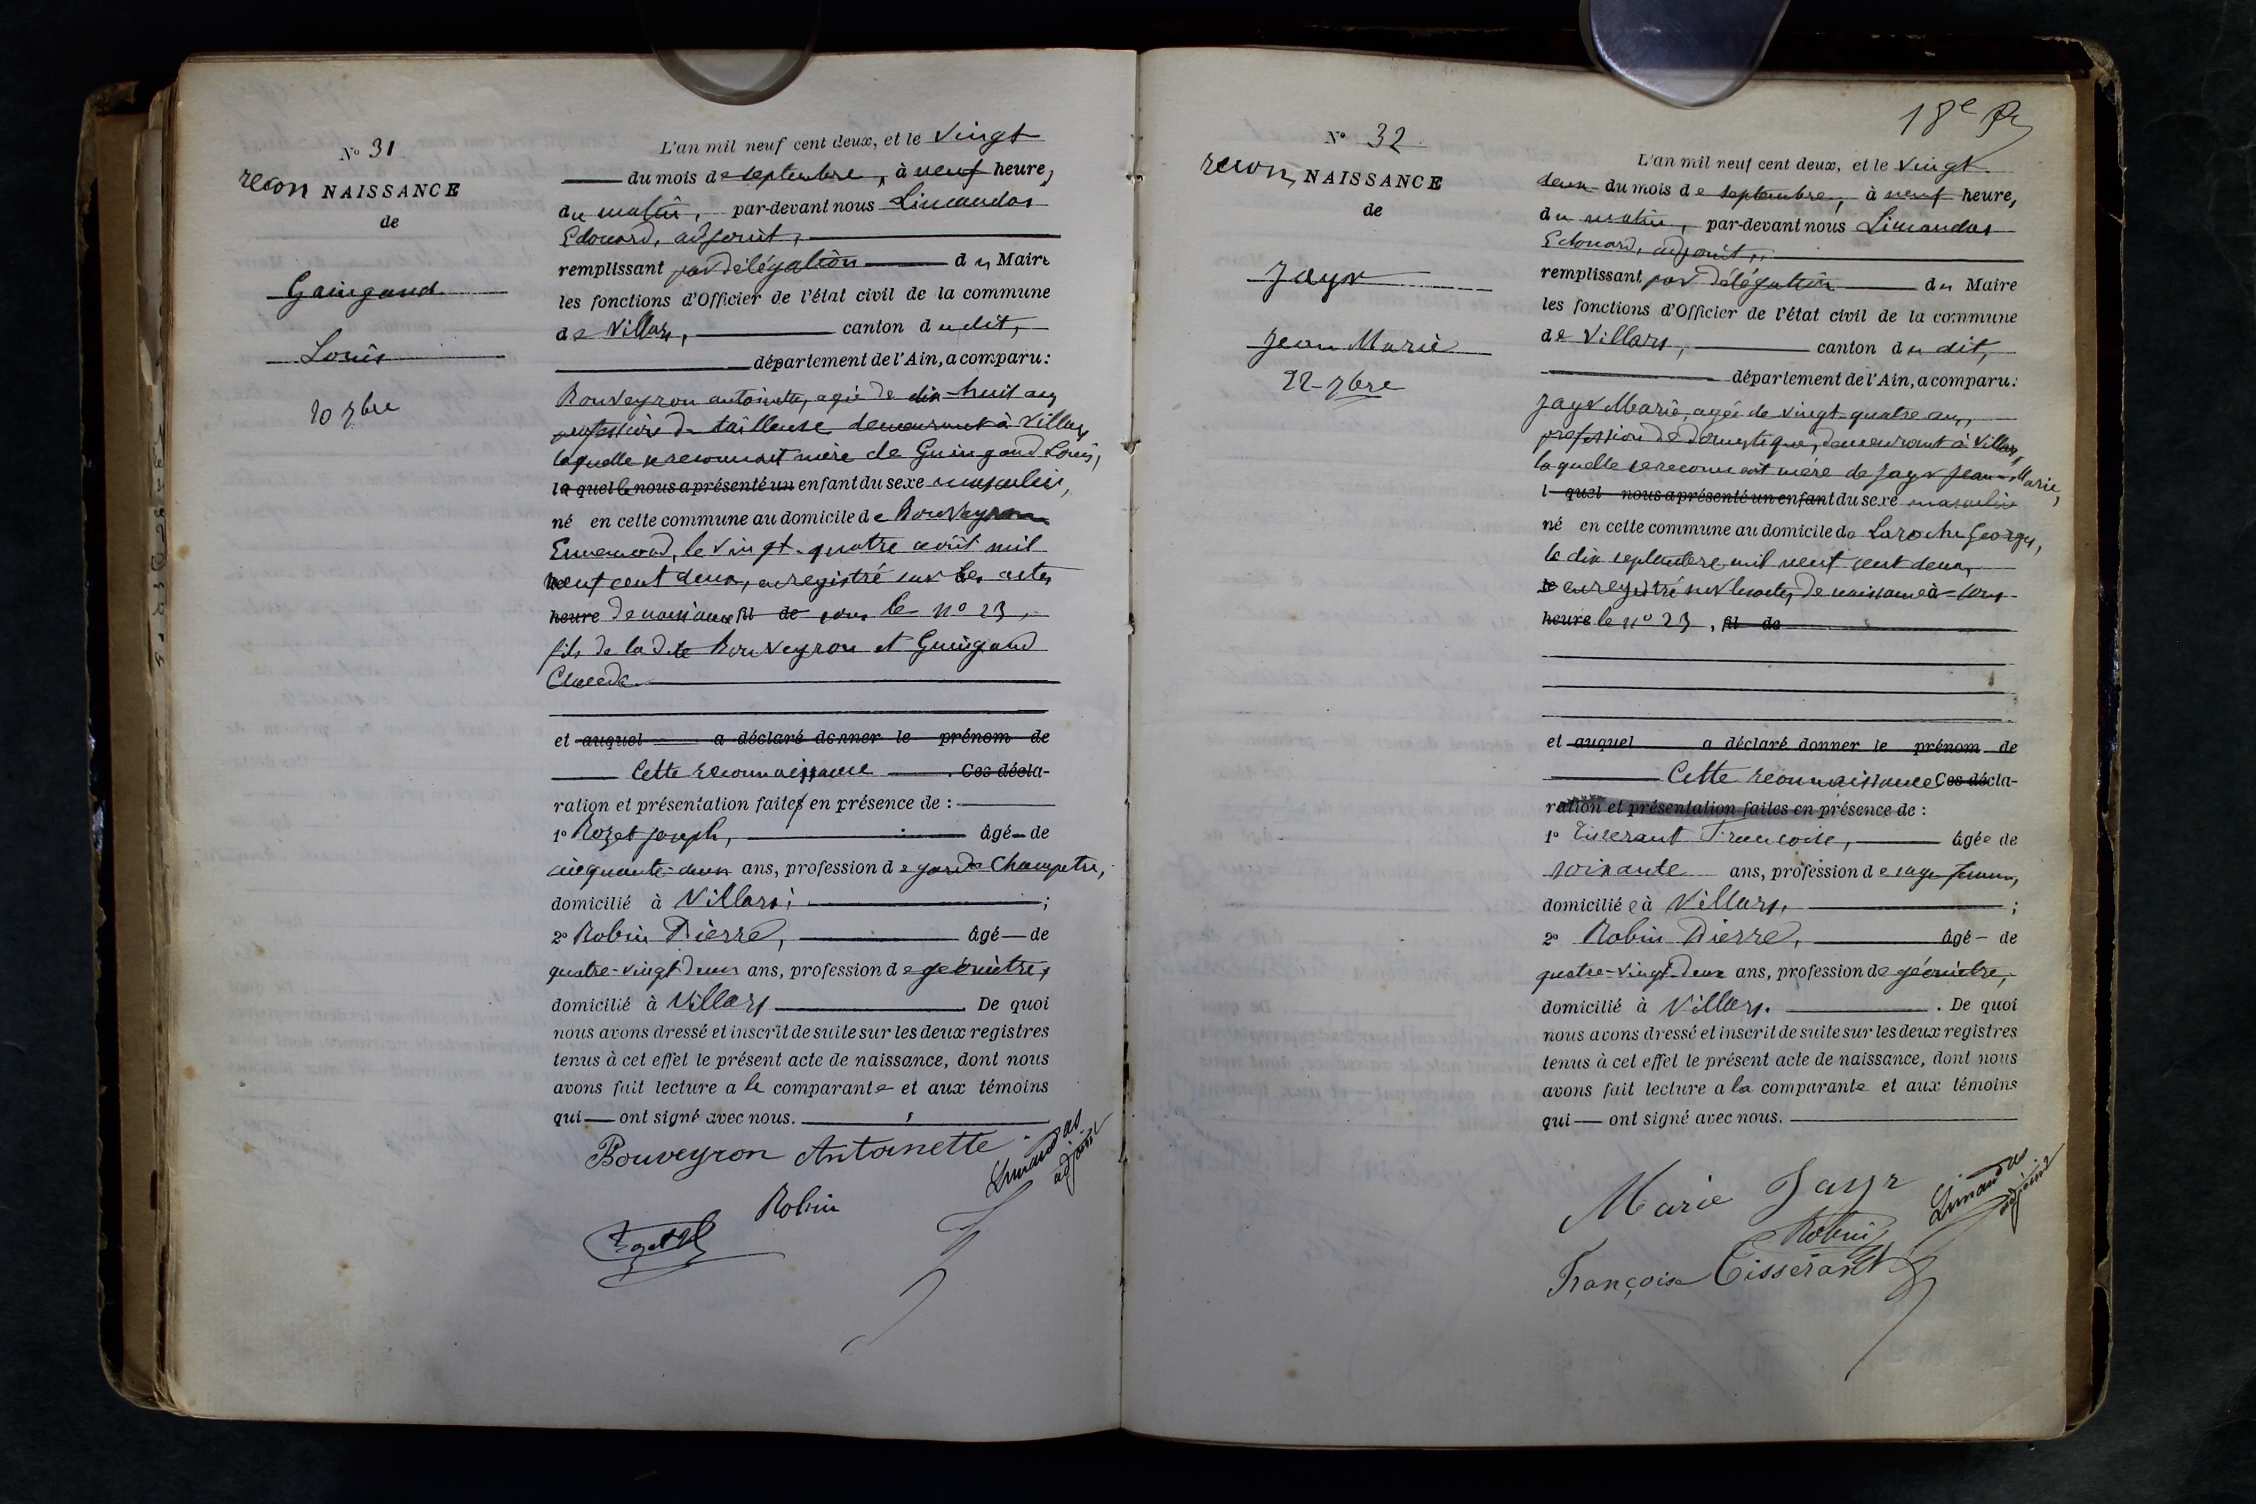 N° 31
recon NAISSANCE
de
Guingand
Louis
20 7bre
L'an mil neuf cent deux, et le vingt
du mois de septembre, à neuf heure,
du matin, par-devant nous Limandas
Edouard, adjoint,
remplissant par délégation du Maire
les fonctions d'Officier de l'état civil de la commune
de Villars, canton du dit,
département de l'Ain, a comparu:
Bouveyron antoinette, agée de dix-huit ans
profession de tailleuse demeurant à Villars
laquelle se reconnait mère de Guingand Louis,
laquelle nous a présenté un enfant du sexe masculin,
né en cette commune au domicile de Bouveyron
Ennemond, le vingt-quatre août mil
neuf cent deux, enregistré sur les actes
heure de naissance fil de sous le n° 23,
fils de la dite Bouveyron et Guingand
Claude
et auquel a déclaré donner le prénom de
Cette reconnaissance . Ces décla-
ration et présentation faites en présence de :
1° Rozet Joseph, âgé de
cinquante-deux ans, profession de garde Champetre,
domicilié à Villars; ;
2° Robin Pierre, âgé de
quatre-vingt-deux ans, profession de géomètre,
domicilié à Villars . De quoi
nous avons dressé et inscrit de suite sur les deux registres
tenus à cet effet le présent acte de naissance, dont nous
avons fait lecture a la comparante et aux témoins
qui ont signé avec nous.
Bouveyron Antoinette
Limandas
adjoint
Robin
Rozet
18e
N° 32
recon NAISSANCE
de
Jayr
Jean Marie
22-7bre
L'an mil neuf cent deux, et le vingt
deux du mois de septembre, à neuf heure,
du matin, par-devant nous Limandas
Edouard, adjoint,
remplissant par délégation du Maire
les fonctions d'Officier de l'état civil de la commune
de Villars, canton du dit,
département de l'Ain, a comparu:
Jayr Marie, agée de vingt-quatre ans,
profession de domestique, demeurant à Villars,
laquelle se reconnait mère de Jayr Jean-Marie,
l quel nous a présenté un enfant du sexe masculin
né en cette commune au domicile de Laroche Georges,
le dix septembre mil neuf cent deux,
le enregistré sur les actes de naissance à sous
heure le n° 29, fil de
et auquel a déclaré donner le prénom de
Cette reconnaissance Ces décla-
ration et présentation faites en présence de :
1° Tisserant Francoise, âgée de
soixante ans, profession de sage femme,
domiciliée à Villars, ;
2° Robin Pierre, âgé de
quatre-vingt-deux ans, profession de géomètre,
domicilié à Villars. . De quoi
nous avons dressé et inscrit de suite sur les deux registres
tenus à cet effet le présent acte de naissance, dont nous
avons fait lecture a la comparante et aux témoins
qui ont signé avec nous.
Marie Jayr
Limandas
adjoint
Robin
Françoise Tisserant